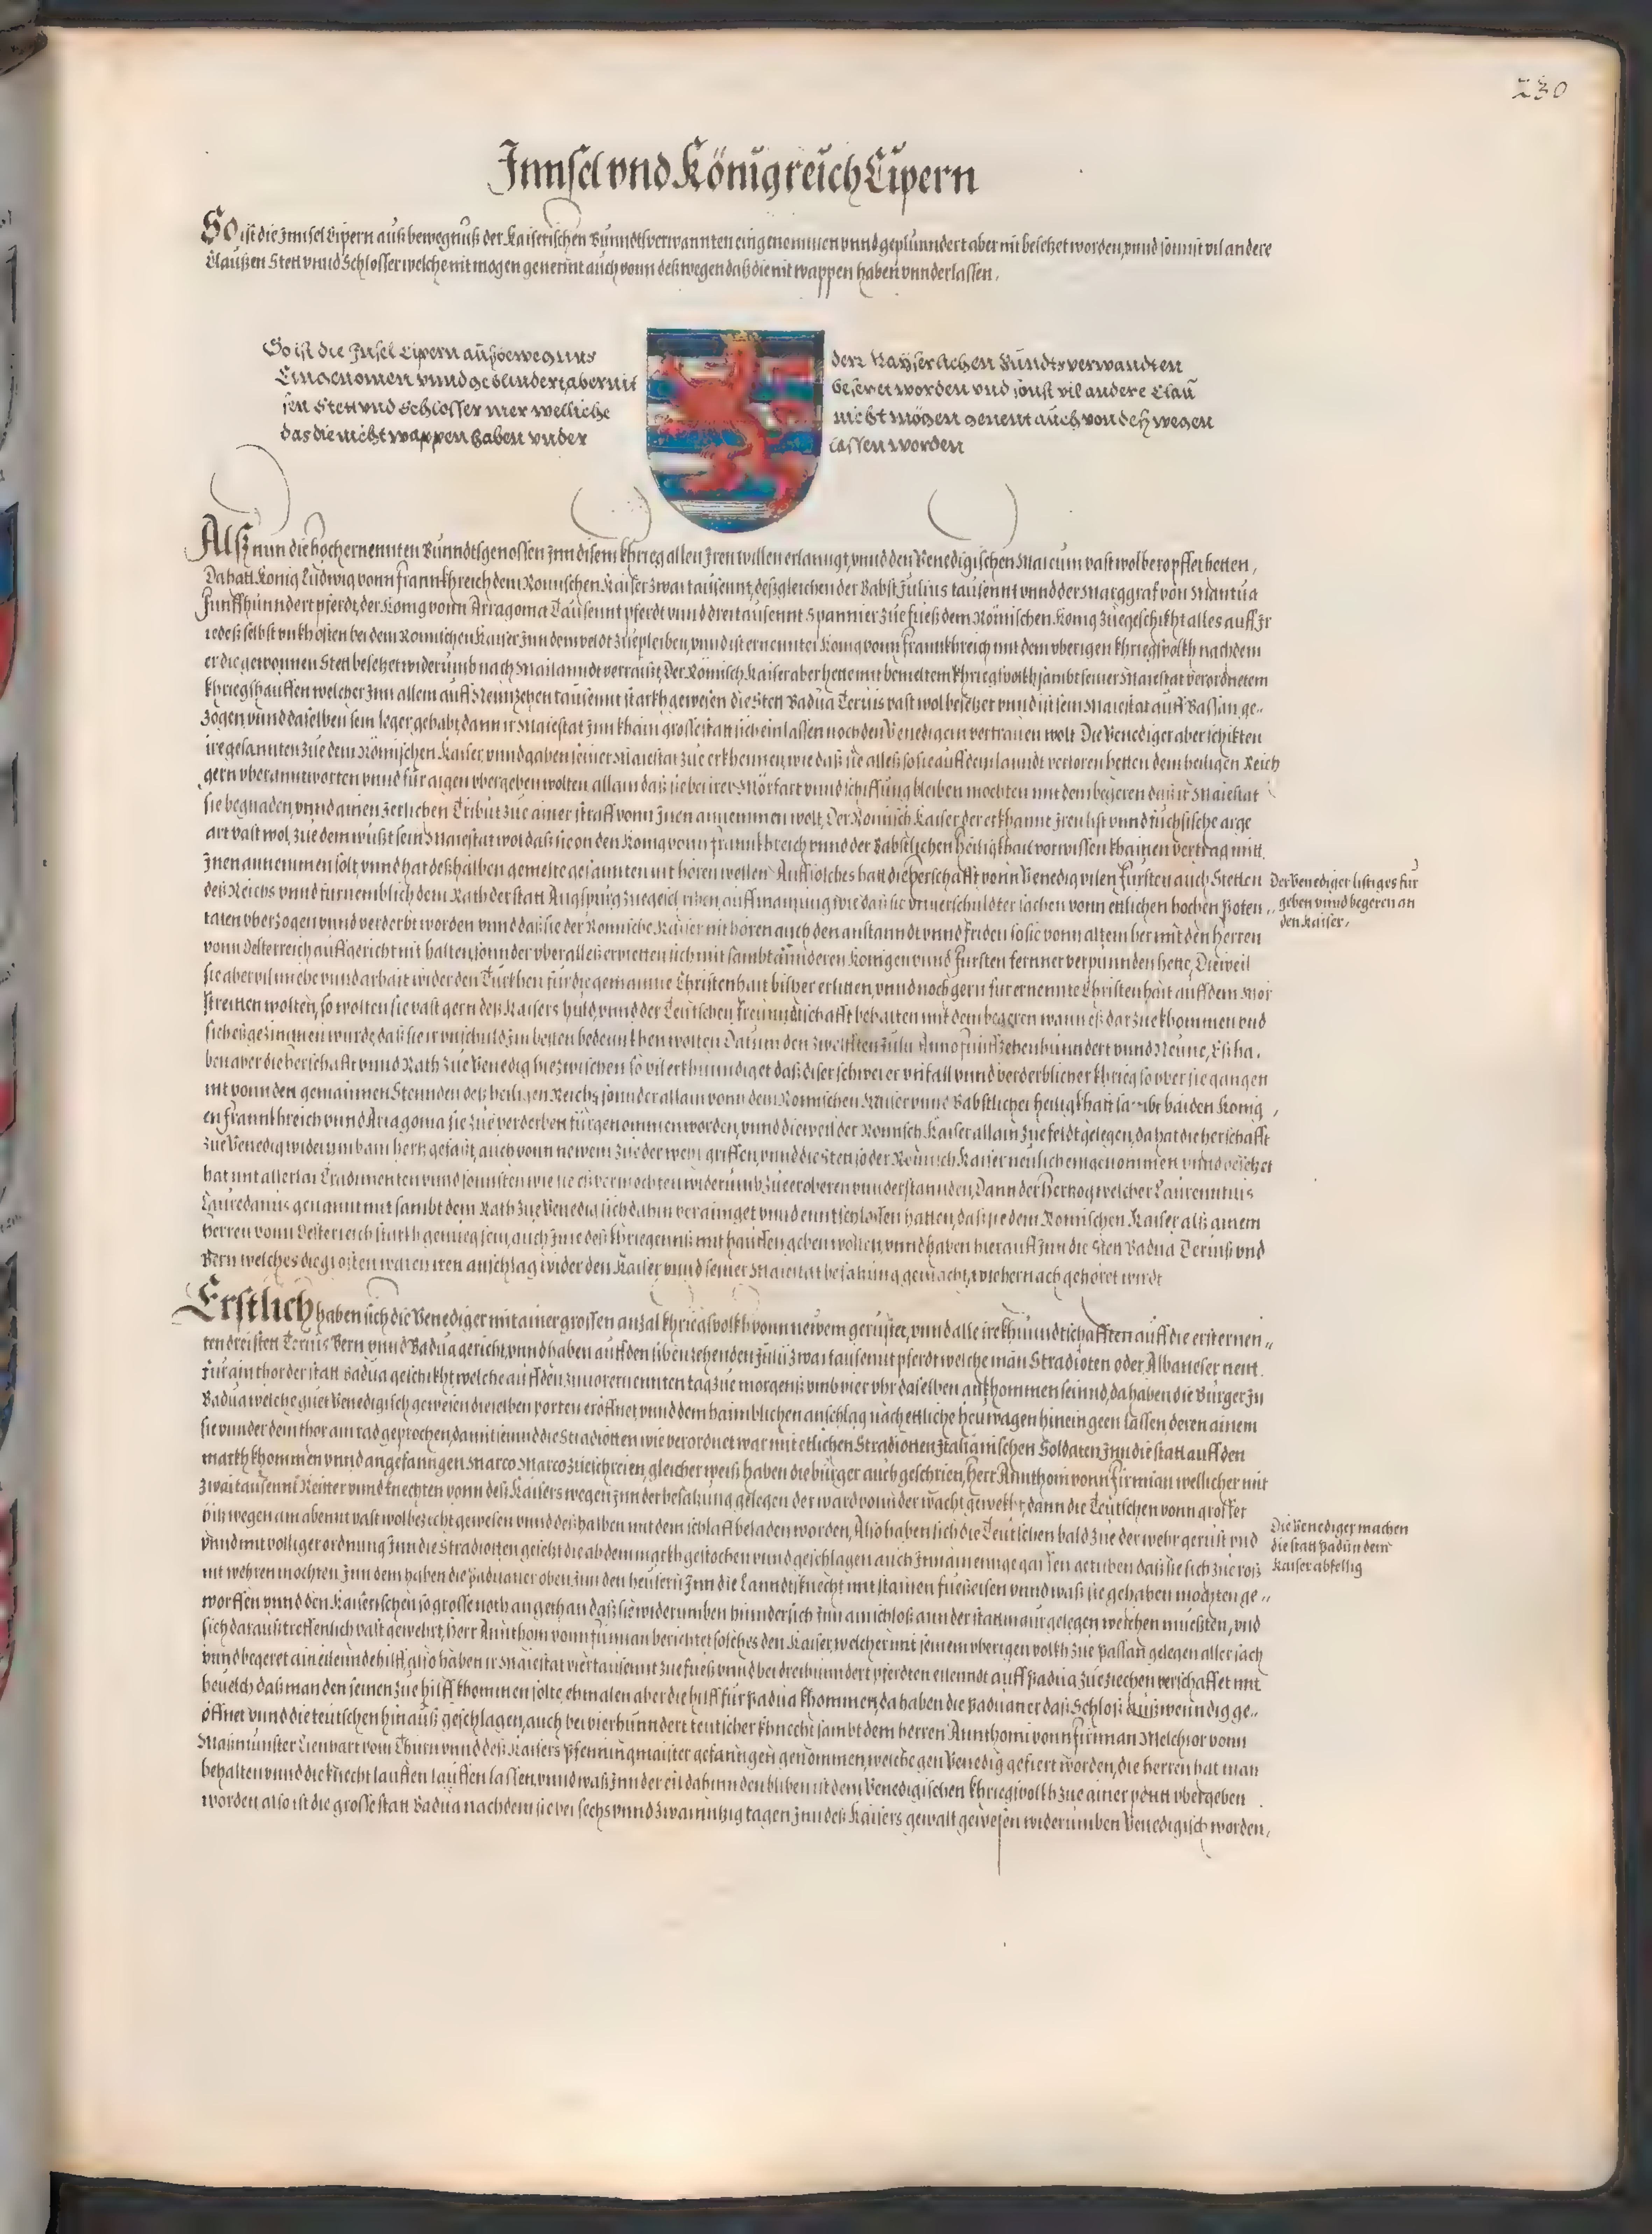 230
Innsel vnd Königreich Cipern
So ist die Innsel Cipern auß bewegnuß der Kaiserischen Bunndtsverwannten eingenommen vnnd geplunndert aber nit besetzet worden, vnnd sonnst vil andere
Claußen Stett vnnd Schlosser welche nit mogen genennt auch vonn deßwegen daß die nit wappen haben vnnderlassen,
So ist die Insel Cipern auß bewegnus
Eingenomen vnnd geblindert, aber nit
sen Stett vnd Schlosser mer welliche
das die nicht wappen haben vnder
derr Kayserlichen Bundtsverwandten
besetzt worden vnd sonst vil andere Clau
nicht mögen genent auch von deß wegen
lassen worden
Alß nun die hochernennten Bunndtsgenossen Inn disem khrieg allen Iren willen erlanngt, vnnd den Venedigischen Marcum vast wol beropfflet hetten,
Da hatt König Ludwig vonn Frannkhreich dem Romischen Kaiser zwai tausennt, deßgleichen der Babst Julius tausennt vnnd der Marggraf von Mantua
Funffhunndert pferdt, der Konig vonn Arragonia Tausennt pferdt vnnd drei tausennt Spannier zue fueß dem Römischen Konig zuegeschikht alles auff Ir
iedeß selbst vnkhosten bei dem Romischen Kaiser Inn dem veldt zuepleiben, vnnd ist ernennter Konig vonn Frannkhreich mit dem vberigen khriegsvolkh nachdem
er die gewonnen Stett besetzet widerumb nach Mailanndt verraißt, Der Römisch Kaiser aber hette mit bemeltem khriegsvolkh sambt seiner Maiestat verordnetem
khriegshauffen welcher Inn allem auff Neunzehen tausennt starkh gewesen die Stett Badua Teruis vast wol besetzet vnnd ist sein Maiestat auff Bassan ge-
zogen vnnd daselben sein leger gehabt, dann ir Maiestat Inn khain grosse statt sich einlassen noch den Venedigern vertrauen wolt Die Venediger aber schikten
ire gesannten zue dem Römischen Kaiser, vnnd gaben seiner Maiestat zue erkhennen, wie daß sie alleß so sie auff dem lanndt verloren hetten dem heiligen Reich
gern vberanntworten vnnd für aigen vbergeben wolten allain daß sie bei irer Mörfart vnnd schiffung bleiben mochten mit dem begeren daß ir Maiestat
sie begnaden, vnnd ainen zerlichen Tribut zue ainer straff vonn Inen annemmen wolt, Der Romisch Kaiser der erkhannt Iren list vnnd fuchsische arge
art vast wol, zue dem wußt sein Maiestat wol daß sie on den Konig vonn Frannkhreich vnnd der Babstlichen Heiligkhait vorwissen khainen vertrag mitt
Inen annemmen solt, vnnd hat deßhalben gemelte gesannten nit hören wellen Auff solches hatt die herschafft vonn Venedig vilen Fürsten auch Stetten
deß Reichs vnnd furnemblich dem Rath der statt Augspurg zuegeschriben, auff mainung wie daß sie vnuerschuldter sachen vonn etlichen hochen Poten-
taten vberzogen vnnd verderbt worden vnnd daß sie der Romische Kaiser nit hören auch den anstanndt vnnd friden so sie vonn altem her mit den Herren
vonn Oesterreich auffgericht nit halten, sonnder vber alleß erpietten sich mit sambt annderen Konigen vnnd Fursten fernner verpunnden hette, Dieweil
sie aber vil muehe vnnd arbait wider den Turkhen für die gemaine Christenhait bisher erlitten, vnnd noch gern für ernennte Christenhait auff dem Mör
streitten wolten, so wolten sie vast gern deß Kaisers huld, vnnd der Teutschen freunndtschafft behalten mit dem begeren wann eß dar zue khommen vnd
sich eß gezimmen wurde, daß sie ir vnschuld Im besten bedennkhen wolten Datum den zwelfften Julii Anno funffzehenhunndert vnnd Neune, Eß ha-
ben aber die Herschafft vnnd Rath zue Venedig hiezwischen so vil erkhunndiget daß diser schwerer vnfall vnnd verderblicher khrieg so vber sie ganngen
nit vonn den gemainen Stennden deß heiligen Reichs, sonnder allain vonn dem Romischen Kaiser vnnd Babstlicher heiligkhait sambt baiden König-
en Frannkhreich vnnd Arragonia sie zue verderben fürgenommen worden, vnnd dieweil der Romisch Kaiser allain zue feldt gelegen, da hat die herschafft
zue Venedig widerumb ain hertz gefaßt, auch vonn newem zue der wehr griffen, vnnd die Stett so der Romisch Kaiser neulich eingenommen vnnd besetzet
hat mit allerlai Tradimenten vnnd sonnsten wie sie eß vermochten widerumb zue eroberen vnnderstannden, Dann der Hertzog welcher Laurentius
Lauredanus genannt mit sambt dem Rath zue Venedig sich dahin verainiget vnnd enntschlossen hatten, daß sie dem Romischen Kaiser alß ainem
Herren vonn Oesterreich starkh genueg sein, auch Ime deß khriegenß mit hauffen geben wolten, vnnd haben hierauff Inn die Stett Badua Teruiß vnd
Bern welches die grosten waren iren anschlag wider den Kaiser vnnd seiner Maiestat besatzung gemacht, wie hernach gehöret wirdt
Erstlich haben sich die Venediger mit ainer grossen anzal khriegsvolkh vonn newem gerustet, vnnd alle ire khunndtschafften auff die ersternen-
ten drei stett Teruis Bern vnnd Badua gericht, vnnd haben auff den sibenzehenden Julii zwai tausennt pferdt welche man Stradioten oder Albaneser nent
Fur ain thor der statt Badua geschikht, welche auff den zuuorernennten tag zue morgens vmb vier vhr daselben ankhommen seinnd, da haben die Burger zu
Badua welche guet Venedigisch gewesen dieselben porten eröffnet, vnnd dem haimblichen anschlag nach ettliche heuwagen hinein geen lassen, deren ainem
sie vnnder dem thor ain rad geprochen, damit sie vnnd die Stradiotten wie verordnet war mit etlichen Stradiotten Italianischen Soldaten Inn die statt auff den
markh khommen vnnd angefanngen Marco Marco zueschreien, gleicher weiß haben die burger auch geschrien, Herr Annthoni vonn Firmian wellicher mit
zwai tausennt Reitter vnnd knechten vonn deß Kaisers wegen Inn der besatzung gelegen der ward vonn der wacht gewekht, dann die Teutschen vonn grosser
hitz wegen am abennt vast wol bezecht gewesen vnnd deßhalben mit dem schlaff beladen worden, Also haben sich die Teutschen bald zue der wehr gerüst vnd
vnnd mit volliger ordnung Inn die Stradiotten gesetzt die ab dem markh gestochen vnnd geschlagen auch Inn ain ennge gassen getriben daß sie sich zue roß
nit wehren mochten Inn dem haben die Paduaner oben Inn den heusern Inn die Lanndtsknecht mit stainen fuereisen vnnd waß sie gehaben mochten ge-
worffen vnnd den Kaiserischen so grosse noth angethan daß sie widerumben hinndersich Inn ain schloß ann der stattmaur gelegen weichen mueßten, vnd
sich darauß treffenlich vast gewehrt, Herr Annthoni vonn Firmian berichtet solches den Kaiser, welcher mit seinem vberigen volkh zue Passan gelegen aller sach
vnnd begeret ain eilennde hilff, also haben ir Maiestat viertausennt zue fueß vnnd bei dreihunndert pferdten eilenndt auff Padua zue ziechen verschaffet mit
beuelch daß man den seinen zue hilff khommen solte, ehmalen aber die hilff für Padua khommen, da haben die Paduaner daß Schloß außwenndig ge-
öffnet vnnd die teutschen hinauß geschlagen, auch bei vierhunndert teutscher khnecht sambt dem herren Annthoni vonn Firmian Melchior vonn
Maßmunster Lienhart vom Thurn vnnd deß Kaisers Pfenningmaister gefanngen genommen, welche gen Venedig gefiert worden, die herren hat man
behalten vnnd die knecht lauffen lauffen lassen, vnnd waß Inn der eil dahinnden bliben ist dem Venedigischen khriegsvolkh zue ainer peütt vbergeben
worden also ist die grosse statt Badua nachdem sie bei sechs vnnd zwainntzig tagen Inn deß Kaisers gewalt gewesen widerumben Venedigisch worden,
Der Venediger listiges für
geben vnnd begeren an
den Kaiser,
Die Venediger machen
die statt Padua dem
Kaiser abfellig